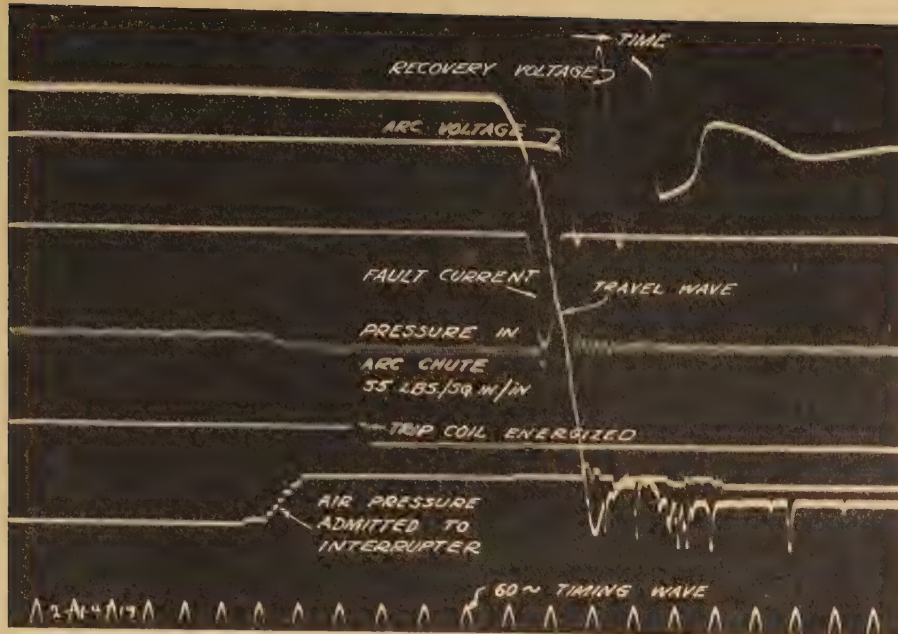 TIME
RECOVERY VOLTAGE
ARC VOLTAGE
FAULT CURRENT
TRAVEL WAVE
PRESSURE IN
ARC CHUTE
55 LBS./SQ IN/IN
TRIP COIL ENERGIZED
AIR PRESSURE
ADMITTED TO
INTERRUPTER
60~ TIMING WAVE